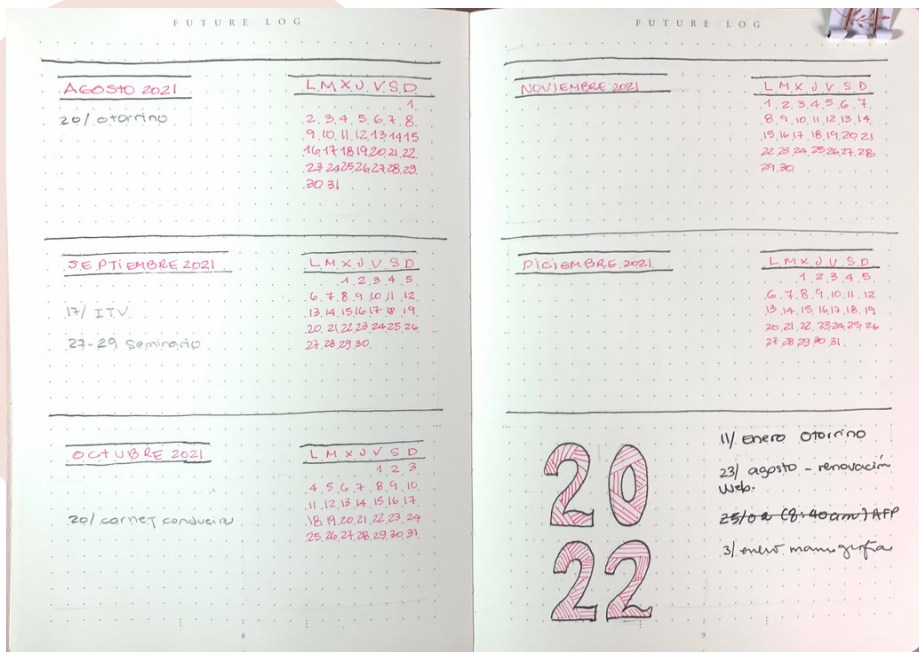 FUTURE LOG
AGOSTO 2021
L M X J V S D
1
20/ otorrino
2 3 4 5 6 7 8
9 10 11 12 13 14 15
16 17 18 19 20 21 22
23 24 25 26 27 28 29
30 31
SEPTIEMBRE 2021
L M X J V S D
1 2 3 4 5
6 7 8 9 10 11 12
17/ ITV
13 14 15 16 17 18 19
20 21 22 23 24 25 26
27-29 Seminario
27 28 29 30
OCTUBRE 2021
L M X J V S D
1 2 3
4 5 6 7 8 9 10
11 12 13 14 15 16 17
20/ carnet conducir
18 19 20 21 22 23 24
25 26 27 28 29 30 31
8
FUTURE LOG
NOVIEMBRE 2021
L M X J V S D
1 2 3 4 5 6 7
8 9 10 11 12 13 14
15 16 17 18 19 20 21
22 23 24 25 26 27 28
29 30
DICIEMBRE 2021
L M X J V S D
1 2 3 4 5
6 7 8 9 10 11 12
13 14 15 16 17 18 19
20 21 22 23 24 25 26
27 28 29 30 31
20
22
11/ enero otorrino
23/ agosto - renovación
web.
25/02 (8:40am) AFP
3/ enero mamografia
9